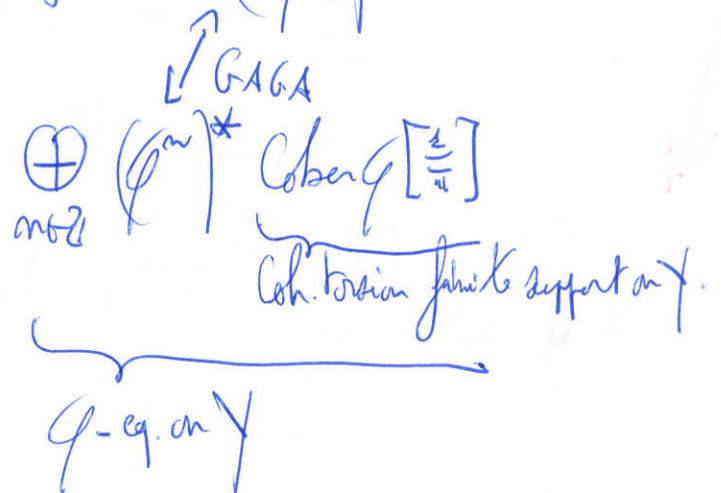 GAGA
⊕ (φ^n)^* Coker φ [1/π]
n∈ℤ
Coh. torsion finite support on Y.
φ-eq. on Y